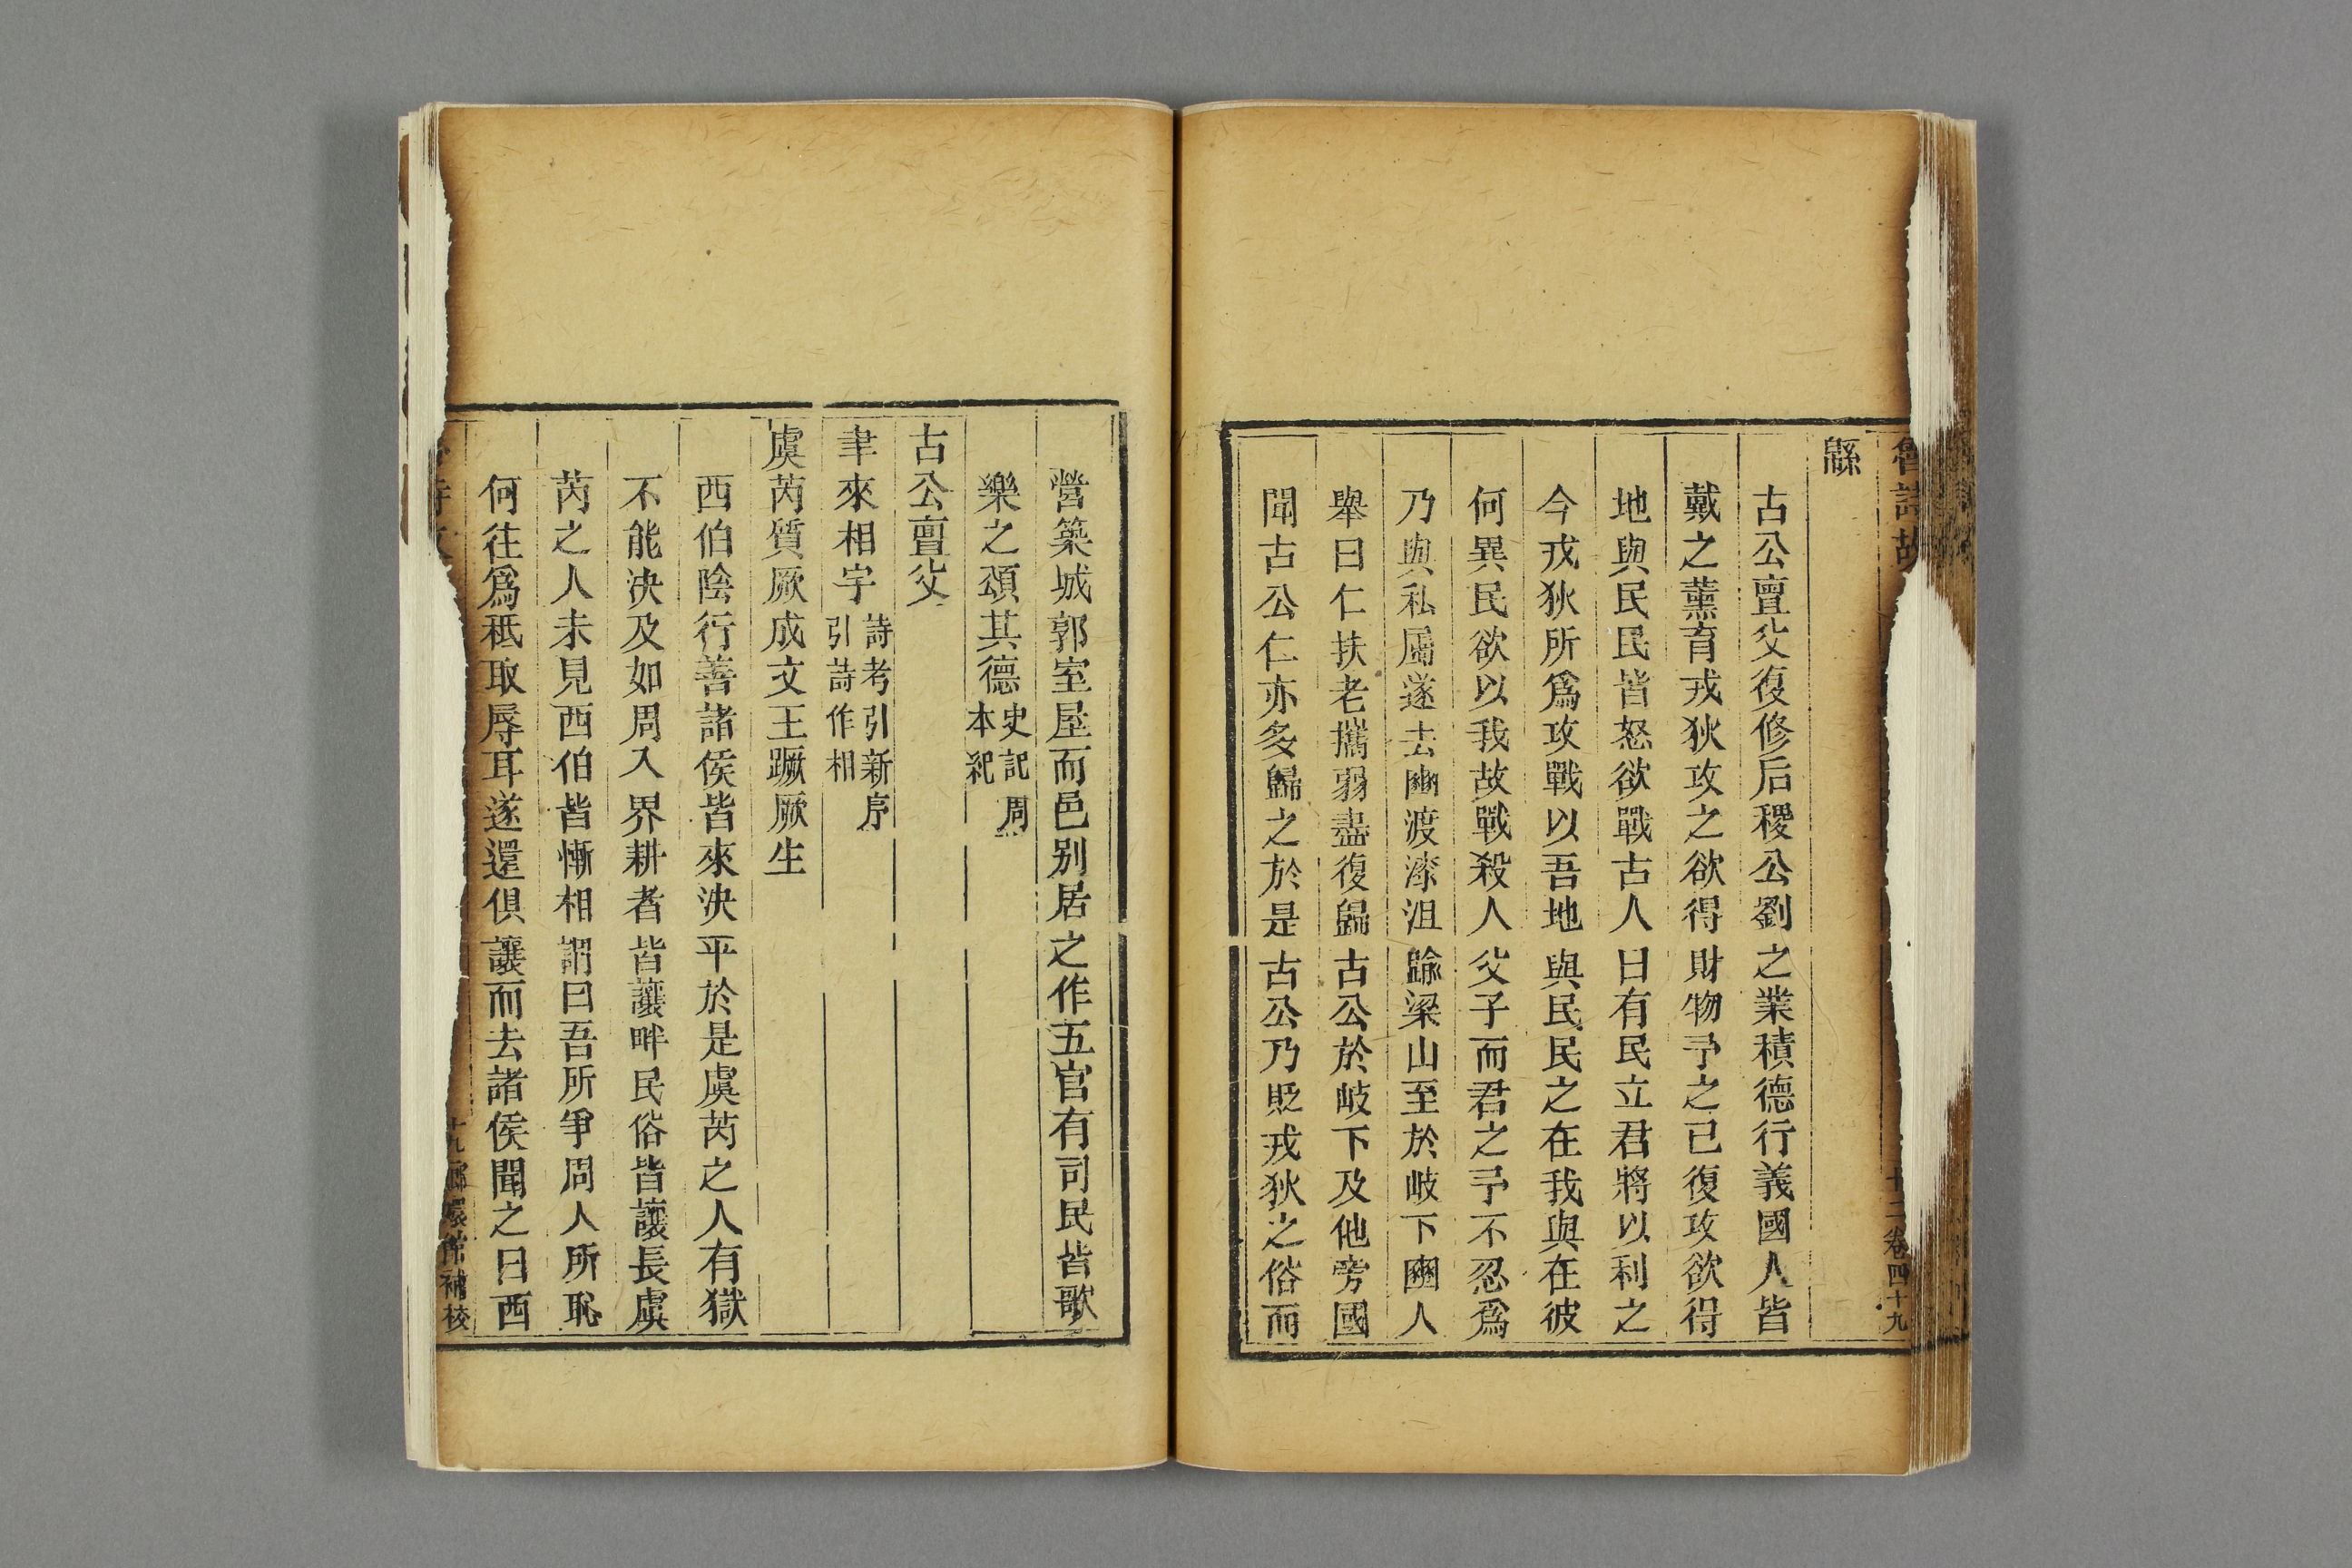 魯詩故
十二卷四十九
緜
古公亶父復修后稷公劉之業積德行義國人皆
戴之薰育戎狄攻之欲得財物予之已復攻欲得
地與民民皆怒欲戰古人曰有民立君將以利之
今戎狄所爲攻戰以吾地與民民之在我與在彼
何異民欲以我故戰殺人父子而君之予不忍爲
乃與私屬遂去豳渡漆沮踰梁山至於岐下豳人
舉曰仁扶老攜弱盡復歸古公於岐下及他旁國
聞古公仁亦多歸之於是古公乃貶戎狄之俗而
營築城郭室屋而邑别居之作五官有司民皆歌
樂之頌其德史記周本紀
古公亶父
聿來相宇詩考引新序引詩作相
虞芮質厥成文王蹶厥生
西伯陰行善諸侯皆來決平於是虞芮之人有獄
不能決及如周入界耕者皆讓畔民俗皆讓長虞
芮之人未見西伯皆慚相謂曰吾所爭周人所恥
何往爲秪取辱耳遂還俱讓而去諸侯聞之曰西
十九嫏嬛館補校